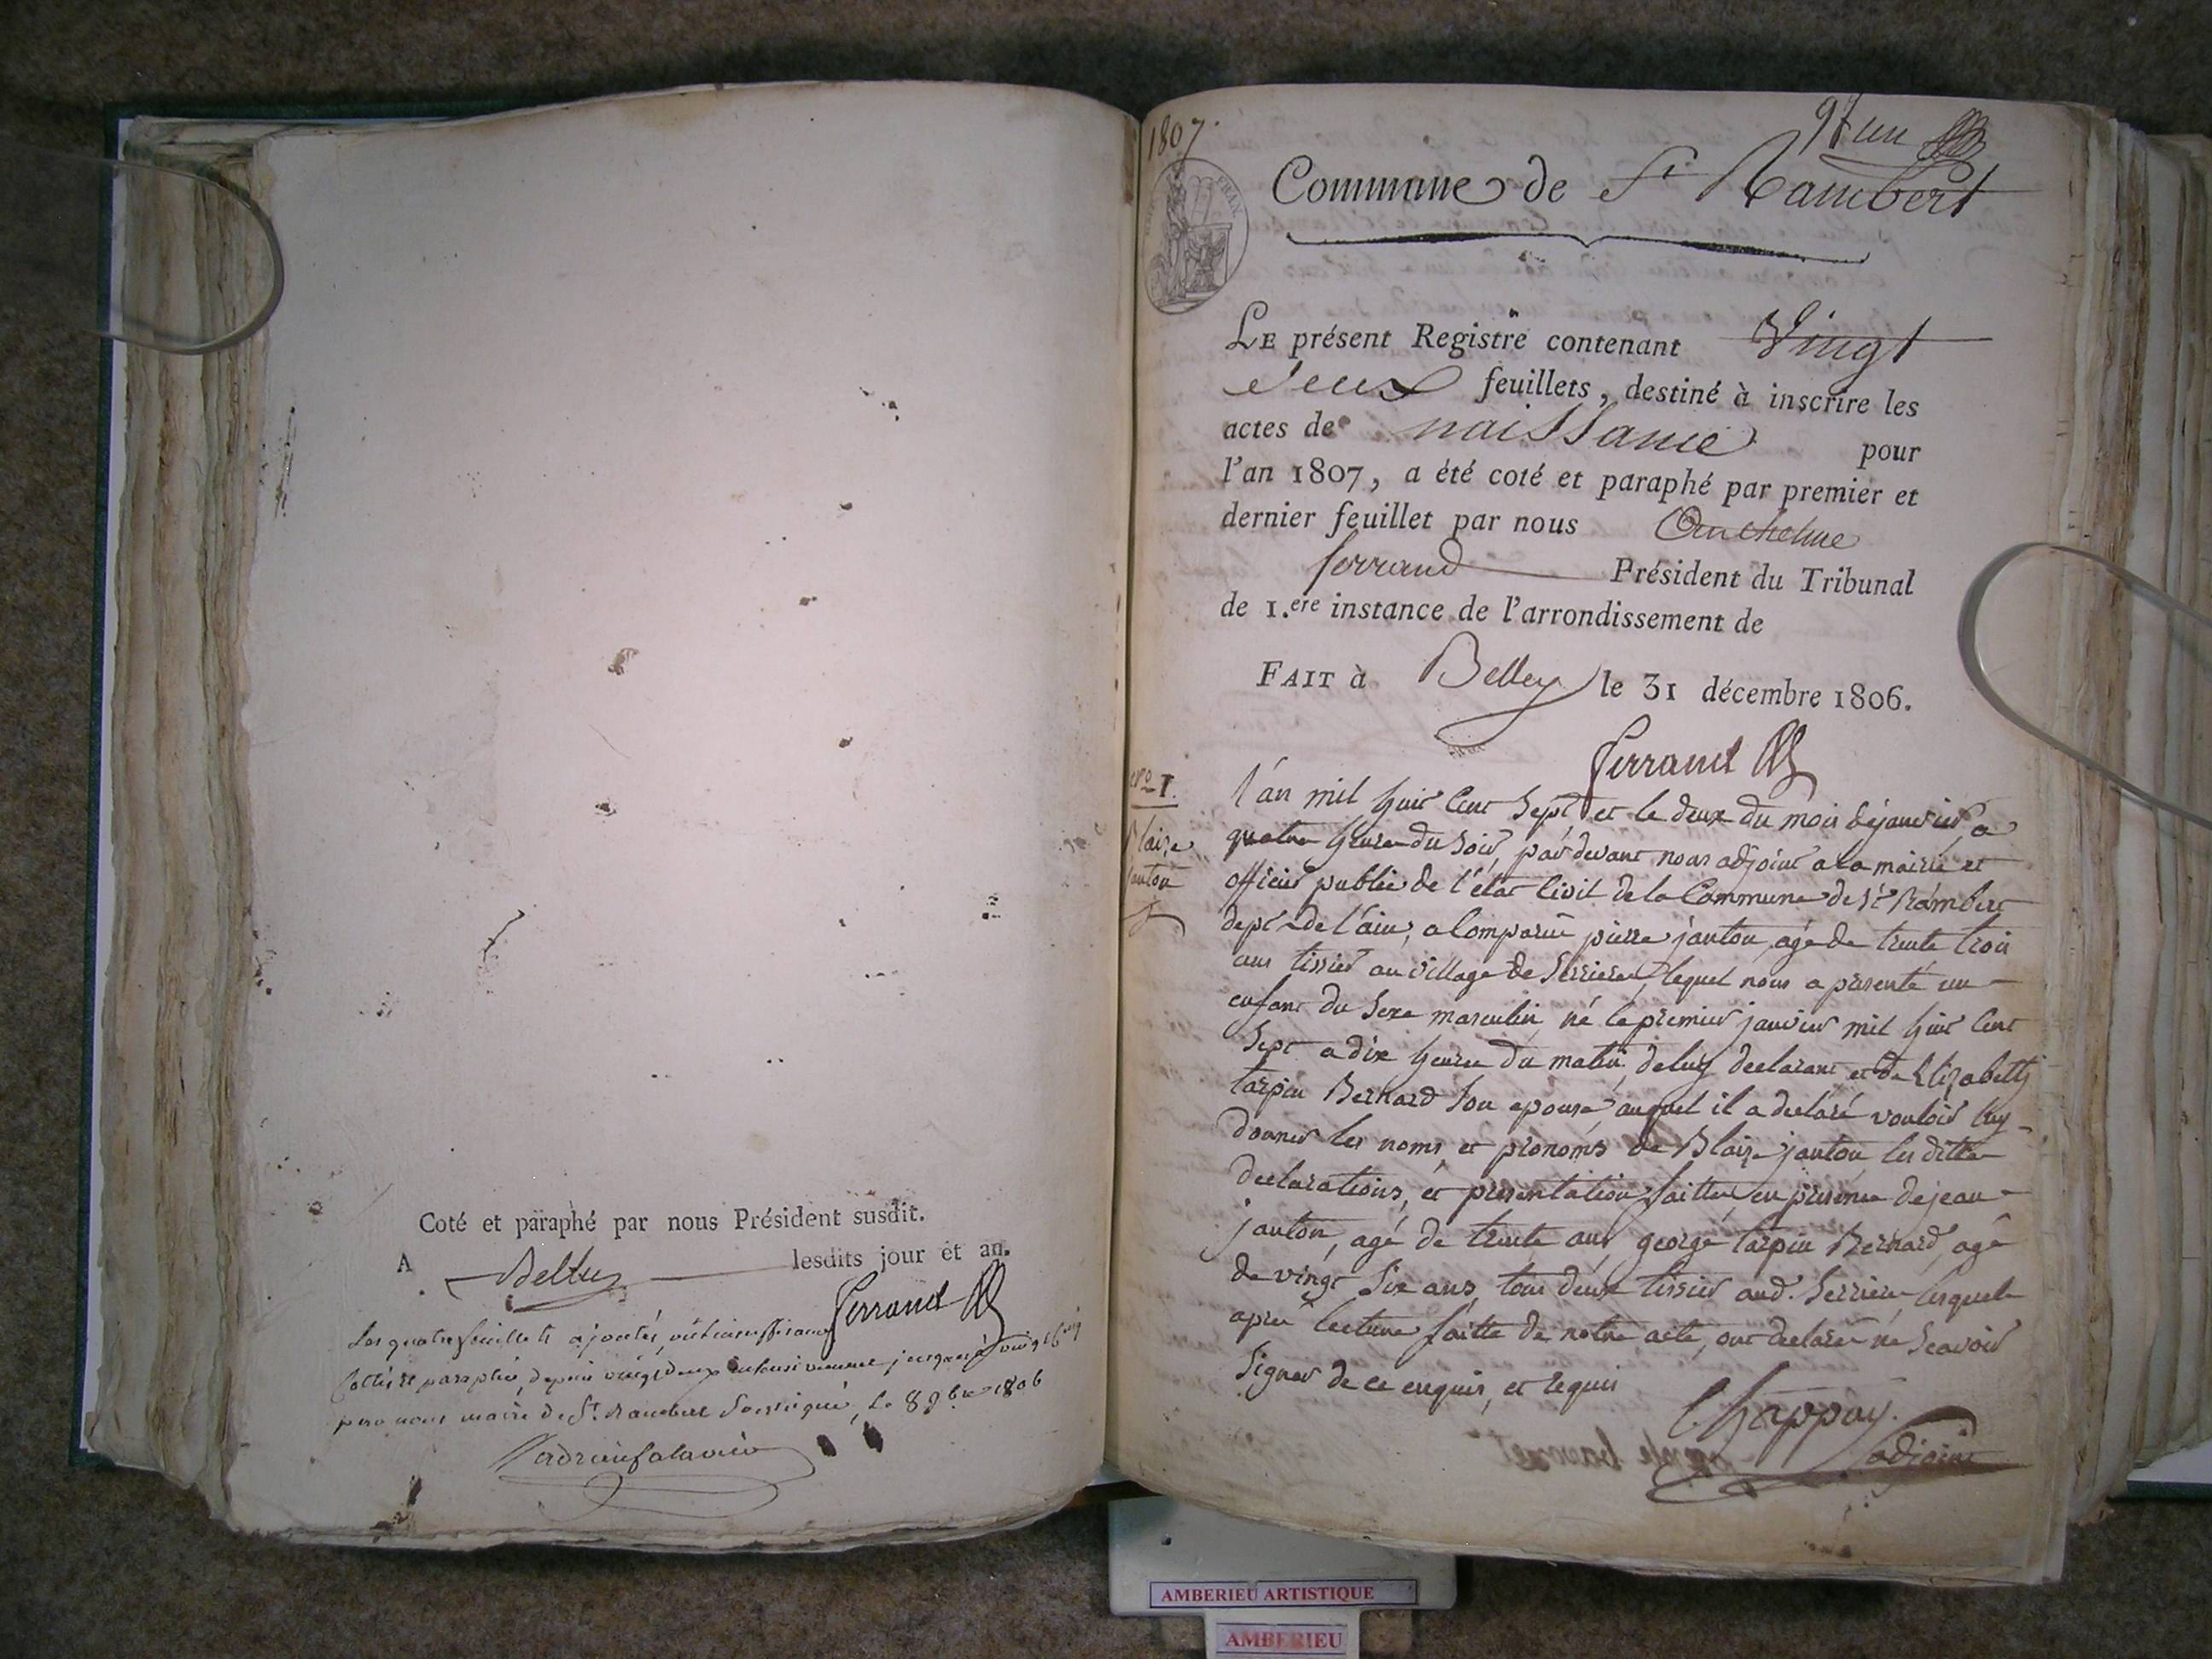 Coté et paraphé par nous Président susdit.
A Belley lesdits jour et an.
Ferrand
Les quatre feuillets ajoutés,
Cottés et paraphés, depuis vingt deux jusques à vingt
par nous maire de St. Rambert Soussigné, Le 8 9bre 1806
1807.
FRAN
Commune de St Rambert
LE présent Registre contenant Vingt
deux feuillets, destiné à inscrire les
actes de naissance pour
l'an 1807, a été coté et paraphé par premier et
dernier feuillet par nous Anthelme
ferrand Président du Tribunal
de 1.ere instance de l'arrondissement de
FAIT à Belley le 31 décembre 1806.
Ferrand
nro 1.
Blaize
janton
l'an mil huit Cent Sept et le deux du mois de janvier, a
quatre heures du soir, par devant nous adjoint a la mairie et
officier public de l'état Civil de la Commune de St Rambert
dept de l'ain, a Comparu pierre janton, agé de trente trois
ans tissier au village de Serrieres, lequel nous a presenté un
enfant du Sexe masculin, né le premier janvier mil huit Cent
Sept a dix heures du matin, de luy declarant et de Elizabeth
tarpin Bernard Son epouse, auquel il a declaré vouloir luy
donner les noms, et prenoms de Blaize janton, les dittes
declarations, et presentation faittes en presence de jean
janton, agé de trente ans, george tarpin Bernard, agé
de vingt Six ans, tous deux tissier aud. Serrieres lesquels
apres lecture faitte de notre acte, ont declaré ne Scavoir
Signer de ce enquis, et requis
Chappuy.
adjoint
AMBERIEU ARTISTIQUE
AMBERIEU